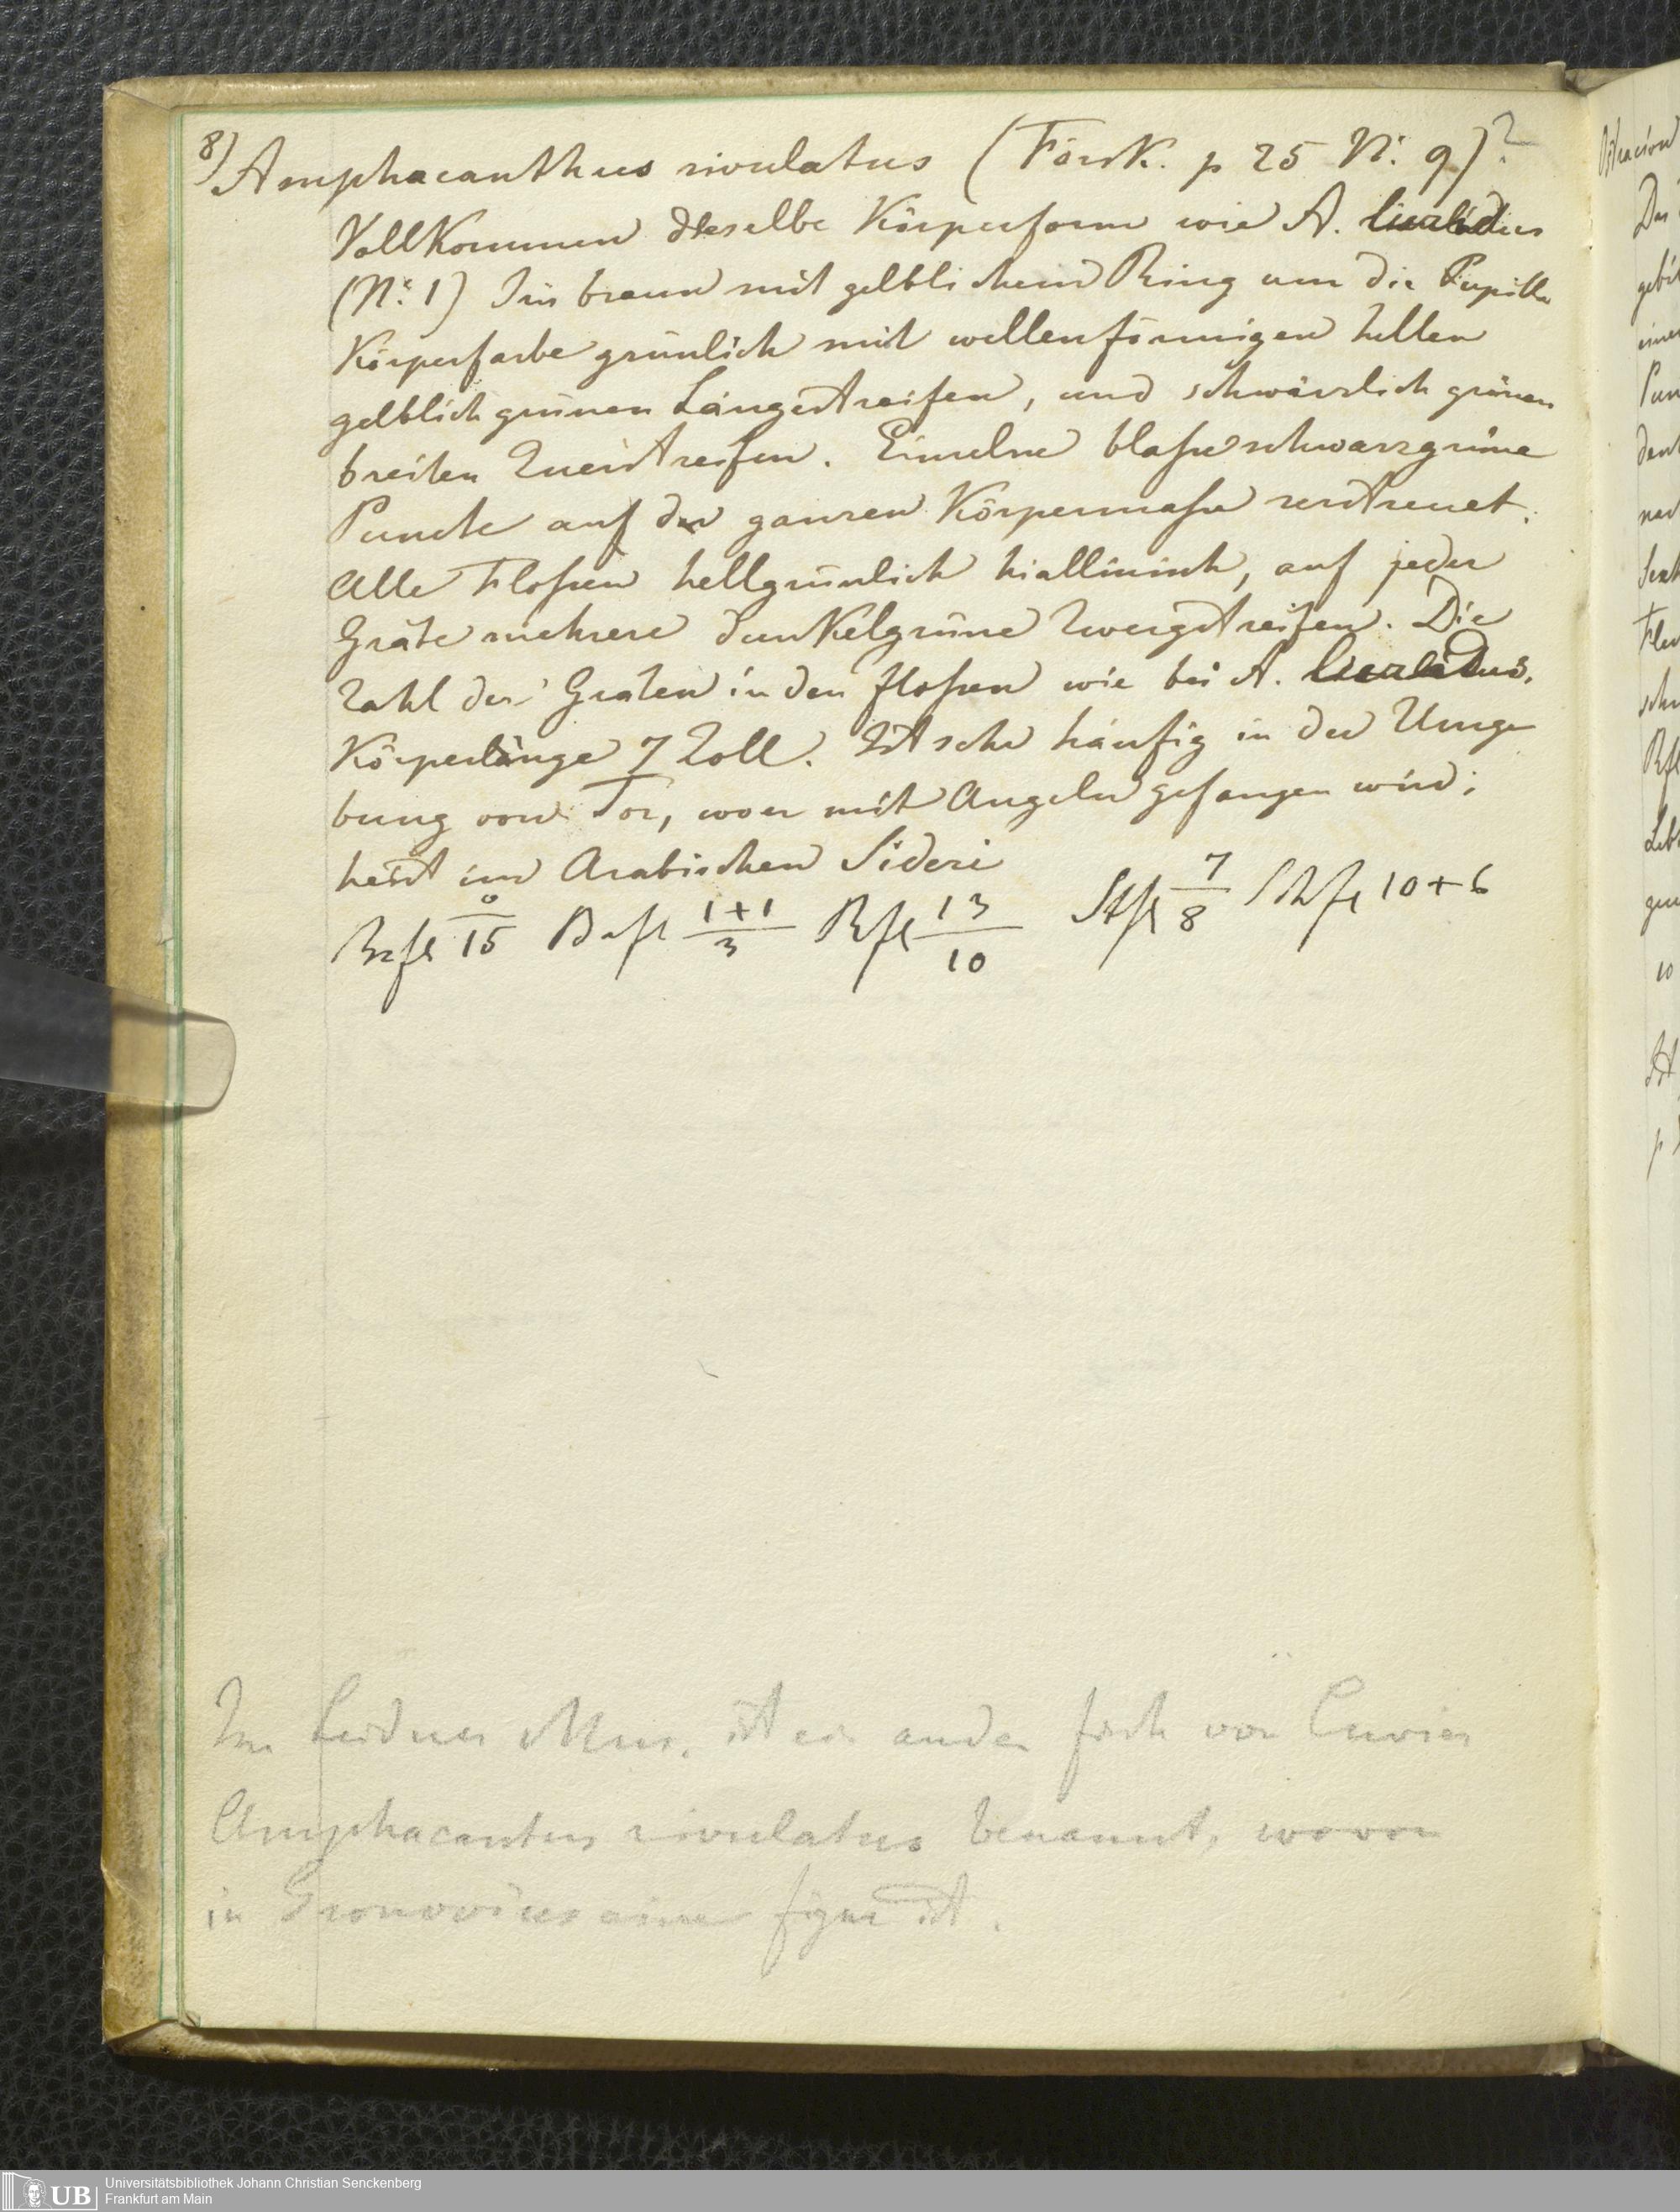 8) Amphacanthus rivulatus (Forsk. p 25 N: 9)?
Vollkommen dieselbe Körperform wie A. luridus
(N: 1) Iris braun mit gelblichem Ring um die Pupille
Körperfarbe grünlich mit wellenförmigen hellen
gelblich grünen Längestreifen, und schwärzlich grünen
breiten Querstreifen. Einzelne blaße schwarzgrüne
Puncte auf der ganzen Körpermaße zerstreuet.
Alle Floßen hellgrünlich hiallinisch, auf jeder
Gräte mehrere dunkelgrüne Zwergstreifen. Die
Zahl der Graten in den floßen wie bei A. luridus.
Körperlänge 7 Zoll. Ist sehr häufig in der Umge
bung von Tor, wo er mit Angeln gefangen wird;
heist im Arabischen Sideri
Brfl 0/15 Bafl 1+1/3 Rfl 13/10 Stfl 7/8 Schfl 10+6
Im Leidner Mus. ist ein ander fisch von Cuvier
Amphacantus rivulatus benannt, wovon
in Gronovius eine figur ist.
Universitätsbibliothek Johann Christian Senckenberg
Frankfurt am Main
UB